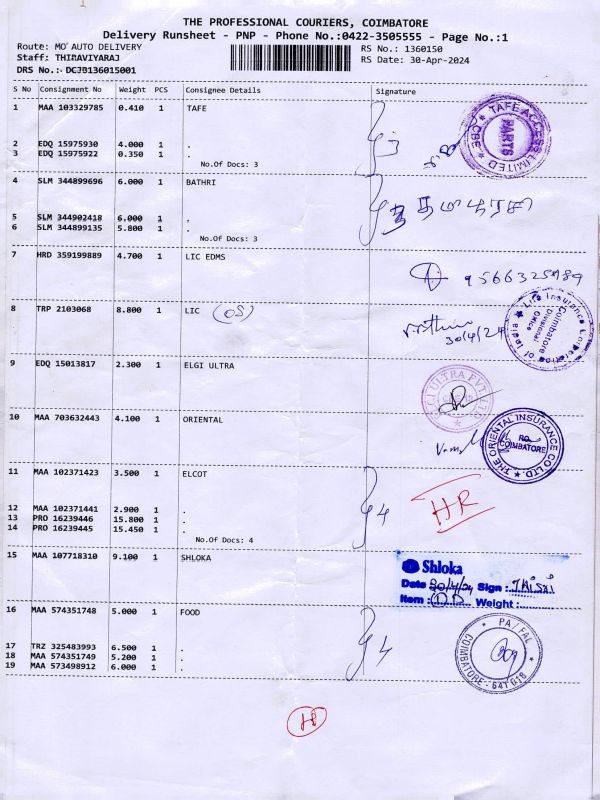 THE PROFESSIONAL COURIERS, COIMBATORE
Delivery Runsheet - PNP - Phone No.:0422-3505555 - Page No.:1
Route: MO' AUTO DELIVERY
Staff: THIRAVIYARAJ
DRS No.: DCJB136015001
RS No.: 1360150
RS Date: 30-Apr-2024
S No Consignment No Weight PCS Consignee Details Signature
1 MAA 103329785 0.410 1 TAFE
2 EDQ 15975930 4.000 1 .
3 EDQ 15975922 0.350 1 .
No.Of Docs: 3
TAFE ACCESS LIMITED
PARTS
CBE
4 SLM 344899696 6.000 1 BATHRI
5 SLM 344902418 6.000 1 .
6 SLM 344899135 5.800 1 .
No.Of Docs: 3
7 HRD 359199889 4.700 1 LIC EDMS
8 TRP 2103068 8.800 1 LIC (OS)
30/4/24
Life Insurance Corporation of India
Coimbatore
Divisional
Office
9 EDQ 15013817 2.300 1 ELGI ULTRA
ULTRA PVT LTD
10 MAA 703632443 4.100 1 ORIENTAL
THE ORIENTAL INSURANCE CO LTD.
RO
COIMBATORE
11 MAA 102371423 3.500 1 ELCOT
12 MAA 102371441 2.900 1 .
13 PRO 16239446 15.800 1 .
14 PRO 16239445 15.450 1 .
No.Of Docs: 4
4
HR
15 MAA 107718310 9.100 1 SHLOKA
Shloka
Date 30/4/24 Sign :
Item : Weight:
16 MAA 574351748 5.000 1 FOOD
17 TRZ 325483993 6.500 1 .
18 MAA 574351749 5.200 1 .
19 MAA 573498912 6.000 1 .
4
PA/FAL
COIMBATORE - 641 018